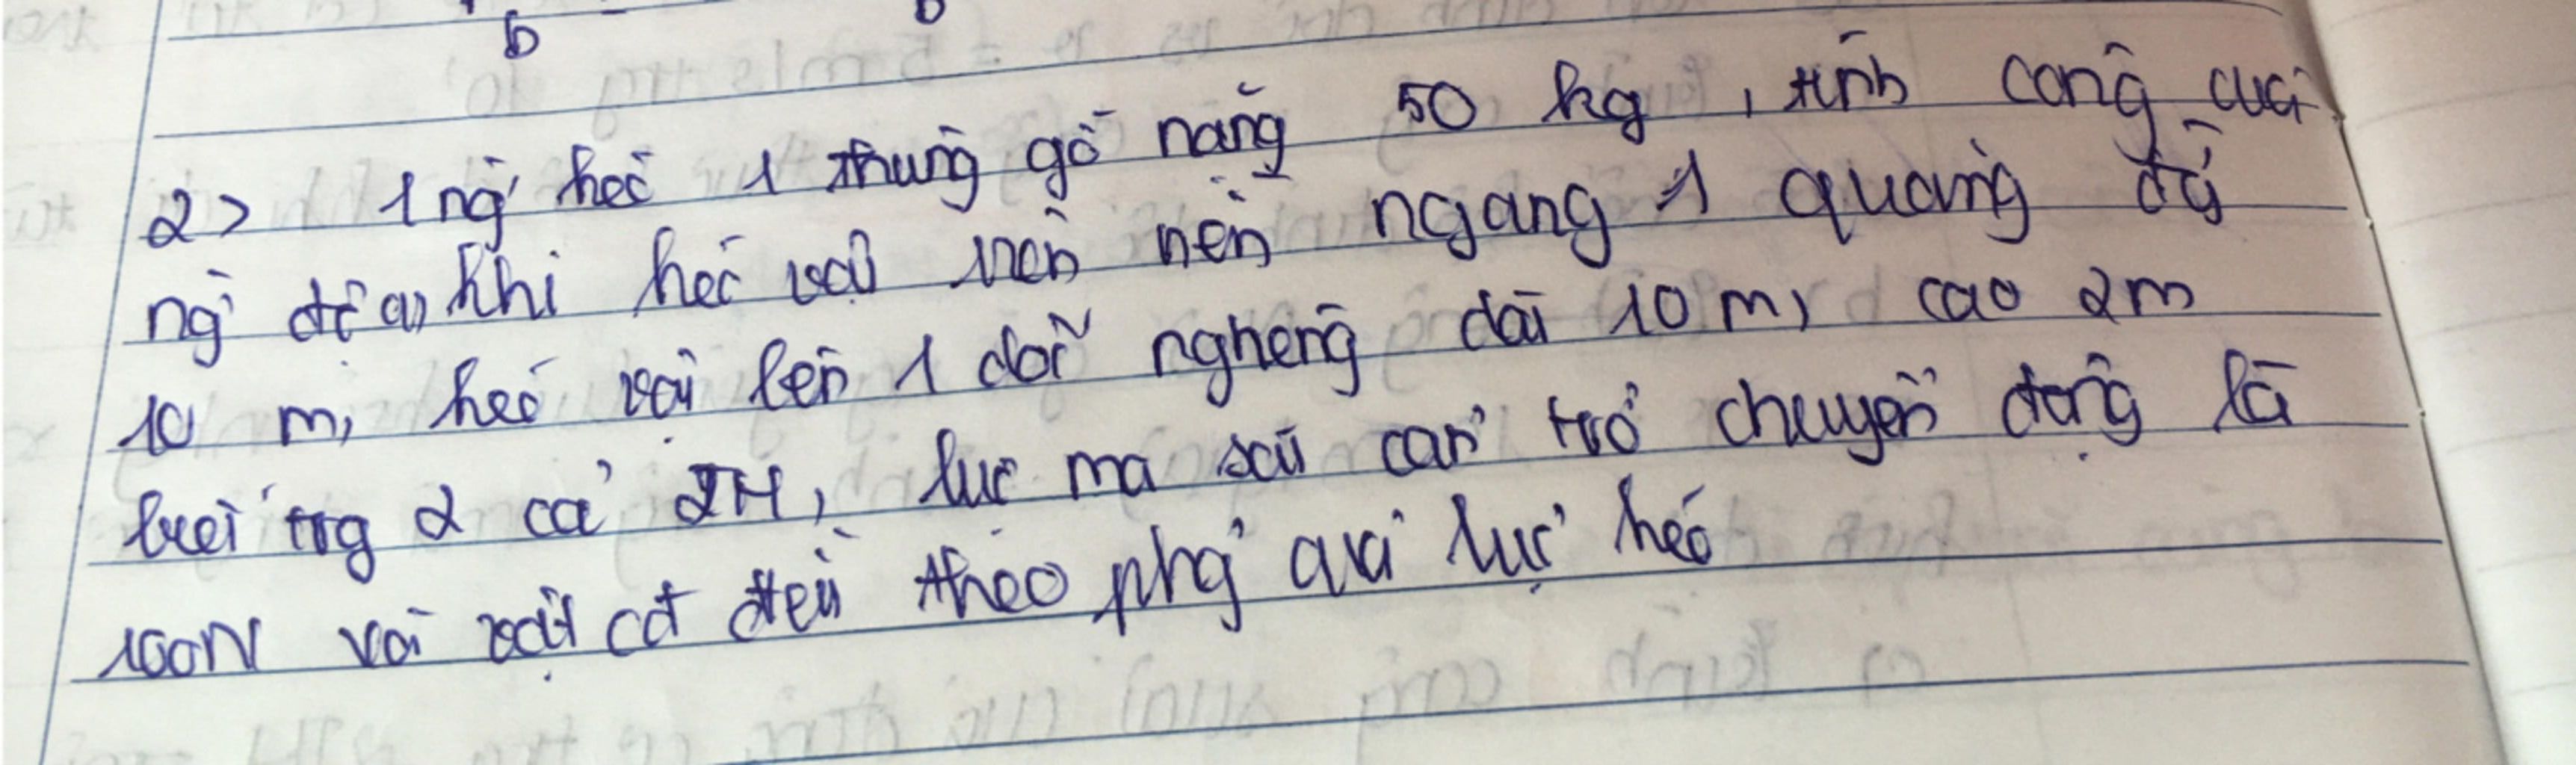 b b
2> 1 ng' kéo 1 thùng gỗ nặng 50 kg, tính công của
ng' đó khi kéo vật trên nền ngang 1 quãng đg
10 m, kéo vật lên 1 dốc nghiêng dài 10 m, cao 2m
biết trg 2 cả TH, lực ma sát cản trở chuyển động là
100N và vật cđ đều theo phg' của lực kéo